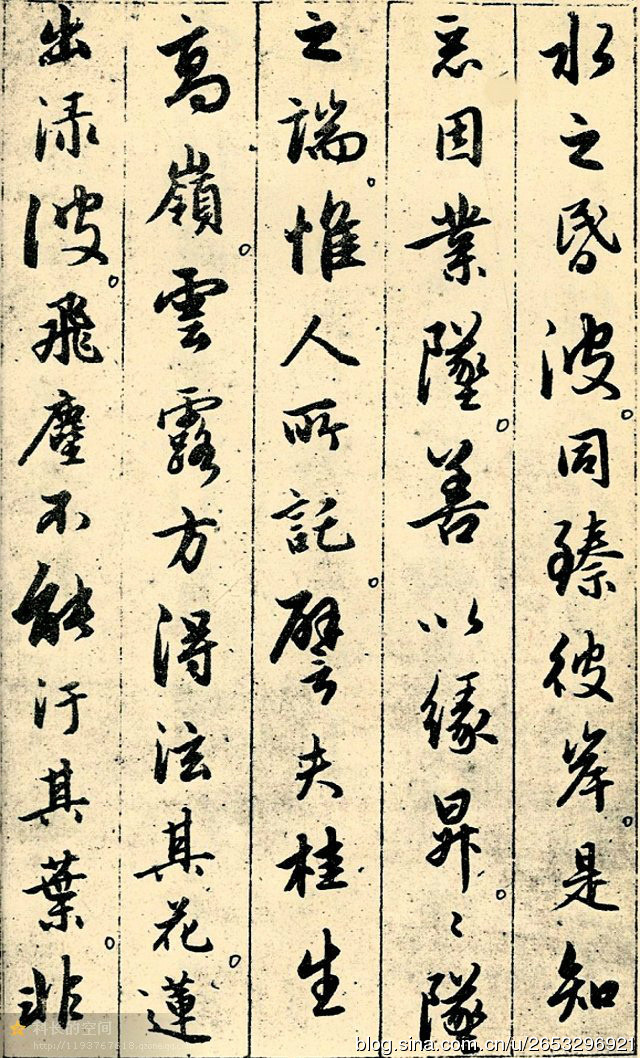 水之昏波。同臻彼岸。是知
惡因業墜。善以緣昇。〻墜
之端。惟人所託。譬夫桂生
高嶺。雲露方得泫其花。蓮
出淥波。飛塵不能汙其葉。非
科长的空间
blog.sina.com.cn/u/2653296921